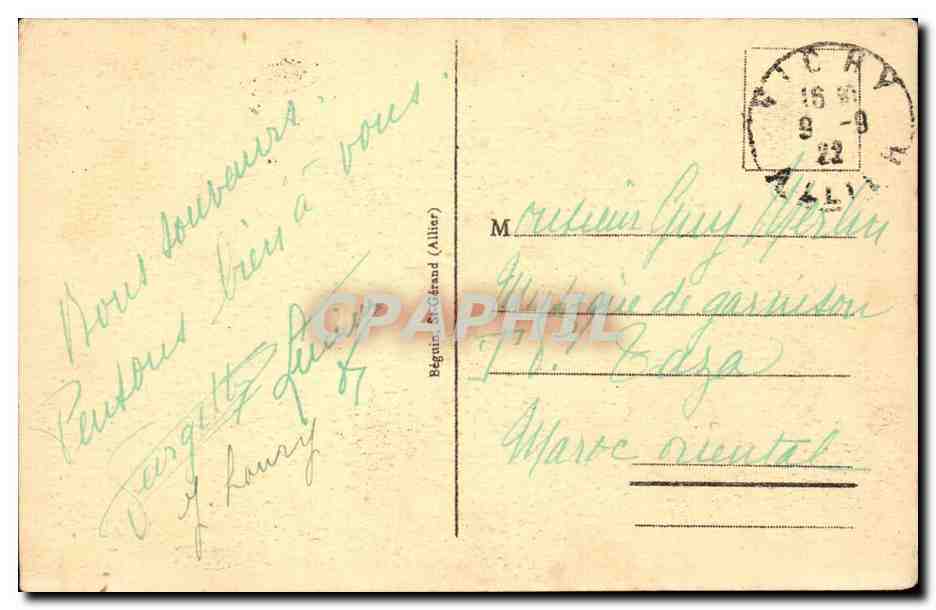 Bons souvenirs
Pensons bien à vous
J. Loury
Béguin, St-Gérand (Allier)
CPAPHIL
VICHY
16
9 -9
22
ALLIER
Monsieur Guy
de garnison
Taza
Maroc oriental